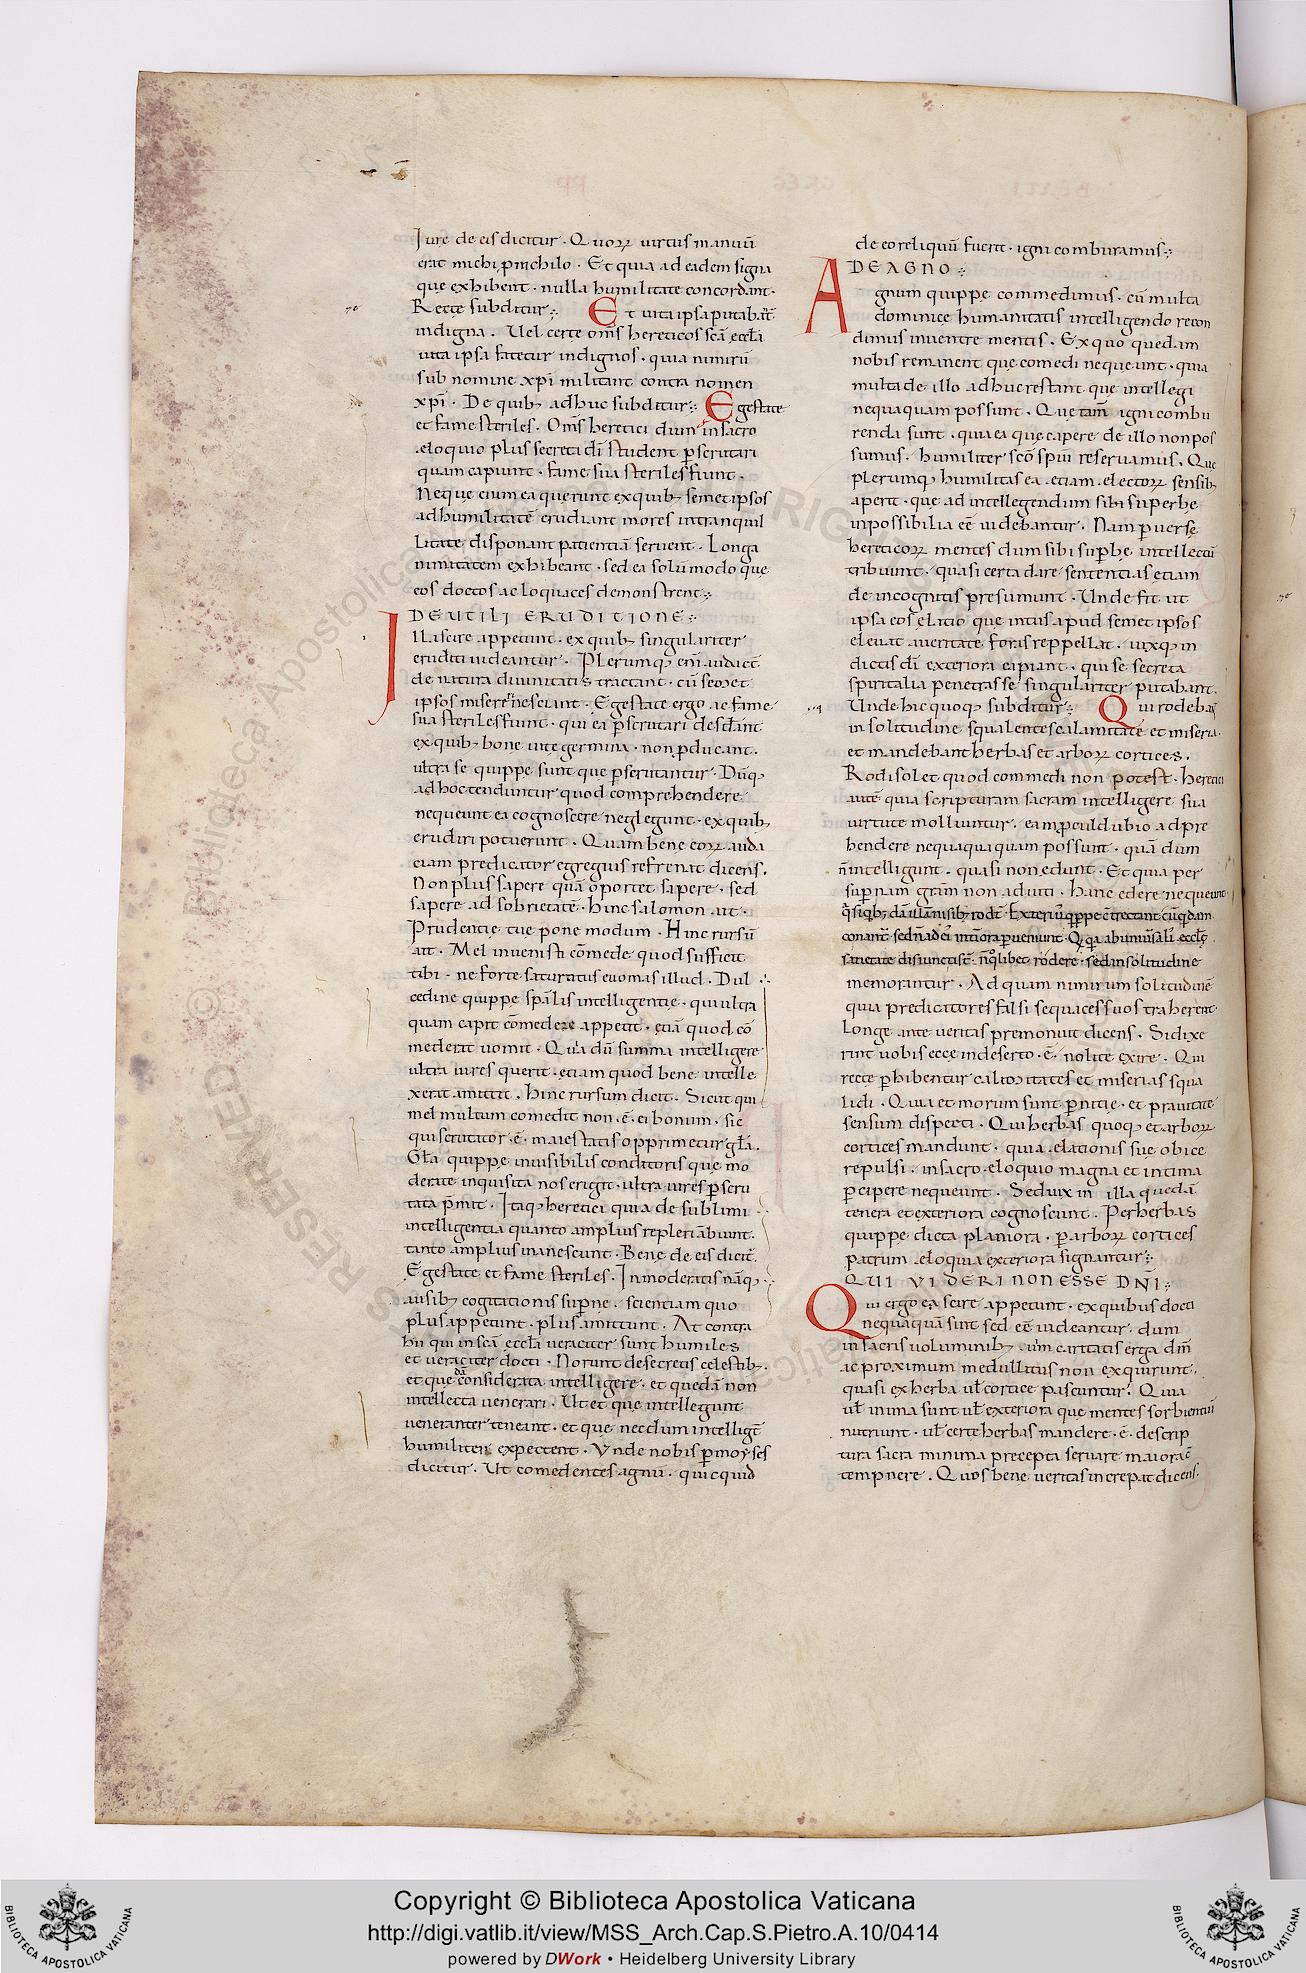 Iure de eis dicitur · Quoꝝ virtus manuū
erat michi ꝑ nichilo · Et quia ad eadem signa
quę exhibent · nulla humilitate concordant ·
Recte subditur ·:· Et vita ipsa putabat̄
indigna · Uel certe oms̄ hereticos scā ęccła
uita ipsa fatetur indignos · quia nimirū
sub nomine xp̄i militant contra nomen
xp̄i · De quibꝫ adhuc subditur ·:· Egestate
et fame steriles · Om̄s heretici dum in sacro
eloquio plus secreti dī student ꝑscrutari
quam capiunt · fame sua steriles fiunt ·
Neque enim ea querunt ex quibꝫ semetipsos
ad humilitatē erudiant mores in tranquil
litate disponant patientiā seruent · Longa
nimitatem exhibeant · sed ea solūmodo quę
eos doctos ac loquaces demonstrent ·:·
DE UTILI ERUDITIONE ·:·
Illa scire appetunt · ex quibꝫ singulariter
eruditi uideantur · Plerumqꝫ em̄ audact̄
de natura diuinitatis tractant · cū semet
ipsos miseri nesciant · Egestate ergo ac fame
sua steriles fiunt · qui ea ꝑscrutari desiderant
ex quibꝫ bone uitę germina · non ꝓducant ·
ultra se quippe sunt que ꝑscrutantur · Dūqꝫ
ad hoc tenduntur quod comprehendere
nequeunt ea cognoscere neglegunt · ex quibꝫ
erudiri potuerunt · Quam bene eoꝝ auda
ciam predicator egregius refrenat dicens ·
Non plus sapere quā oportet sapere · sed
sapere ad sobrietatē · Hinc salomon ait ·
Prudentię tuę pone modum · Hinc rursū
ait · Mel inuenisti cōmede quod sufficit
tibi · ne forte saturatus euomas illud · Dul
cedine quippe sp̄alis intelligentię · qui ultra
quam capit cōmedere appetit · etiā quod cō
mederat uomit · Quia dū summa intelligere
ultra uires querit · etiam quod bene intelle
xerat amittit · Hinc rursum dicit · Sicut qui
mel multum comedit non · ē · ei bonum · sic
qui scrutator · ē · maiestatis opprimetur gła ·
Gła quippe inuisibilis conditoris quę mo
derate inquisita nos erigit · ultra uires ꝑscru
tata p̄mit · Itaqꝫ heretici quia de sublimi
intelligentia quanto amplius repleri ambiunt ·
tanto amplius inanescunt · Bene de eis dicit̄ ·
Egestate et fame steriles · Inmoderatis nāqꝫ
ausibꝫ cogitationis suꝑnę · scientiam quo
plus appetunt · plus amittunt · At contra
hii qui in scā ęccła ueraciter sunt humiles
et ueraciter docti · Norunt de secretis celestibꝫ ·
et quędā considerata intelligere · et quedā non
intellecta uenerari · Ut et quę intellegunt
ueneranter teneant · et quę necdum intelligt̄
humiliter expectent · Vnde nobis ꝑ moysės
dicitur · Ut comedentes agnū · quicquid
de eo reliquū fuerit · igni comburamus ·:·
DE AGNO ·:·
Agnum quippe commedimus · cū multa
dominicę humanitatis intelligendo recon
dimus in uentre mentis · Ex quo quedam
nobis remanent que comedi nequeunt · quia
multa de illo adhuc restant que intellegi
nequaquam possunt · Quę tam̄ igni combu
renda sunt · quia ea quę capere de illo non pos
sumus · humiliter scō sp̄ui reseruamus · Que
plerumqꝫ humilitas ea etiam electoꝝ sensibꝫ
aperit · que ad intellegendum sibi superbe
inpossibilia eē uidebantur · Nam ꝑuersę
hereticoꝝ mentes dum sibi suꝑbe intellectū
tribuunt · quasi certa dare sententias etiam
de incognitis presumunt · Unde fit ut
ipsa eos elatio que intus apud semet ipsos
eleuat a ueritate foras reppellat · uixqꝫ in
dictis dī exteriora capiant · qui se secreta
spiritalia penetrasse singulariter putabant ·
Unde hic quoqꝫ subditur ·:· Qui rodebant
in solitudine squalentes calamitate et miseria ·
et mandebant herbas et arboꝝ cortices ·
Rodi solet quod commedi non potest · heretici
autē quia scripturam sacram intelligere sua
virtute molliuntur · eam ꝓculdubio adpre
hendere nequaquaquam possunt · quā dum
n̄ intelligunt · quasi non edunt · Et quia per
suꝑnam grām non aduti · hanc edere nequeunt ·
memorantur · Ad quam nimirum solitudinē
quia predicatores falsi sequaces suos traherent
Longe ante ueritas premonuit dicens · Si dixe
rint uobis ecce in deserto · ē · nolite exire · Qui
recte ꝑhibentur calamitates et miserias squa
lidi · Quia et morum sunt ꝑnitie · et prauitate
sensum disperti · Qui herbas quoqꝫ et arboꝝ
cortices mandunt · quia elationis suę obice
repulsi · in sacro eloquio magna et intima
ꝑcipere nequeunt · Sed uix in illa quedā
tenera et exteriora cognoscunt · Per herbas
quippe dicta planiora · ꝑ arboꝝ cortices
patrum eloquia exteriora signantur ·:·
QUI VIDERI NON ESSE DN̄I ·:·
Qui ergo ea scire appetunt · ex quibus docti
nequaquā sint sed eē uideantur · dum
in sacris uoluminibꝫ uim caritatis erga dm̄
ac proximum medullitus non exquirunt ·
quasi ex herba uł cortice pascuntur · Quia
uł inima sunt uł exteriora que mentes sorbientiū
nutriunt · uł certe herbas mandere · ē · de scrip
tura sacra minima precepta seruare maiora ē
tempnere · Quos bene ueritas increpat dicens ·
ALL RIGHTS RESERVED
© Biblioteca Apostolica Vaticana
Copyright © Biblioteca Apostolica Vaticana
http://digi.vatlib.it/view/MSS_Arch.Cap.S.Pietro.A.10/0414
powered by DWork • Heidelberg University Library
BIBLIOTECA APOSTOLICA VATICANA
BIBLIOTECA APOSTOLICA VATICANA